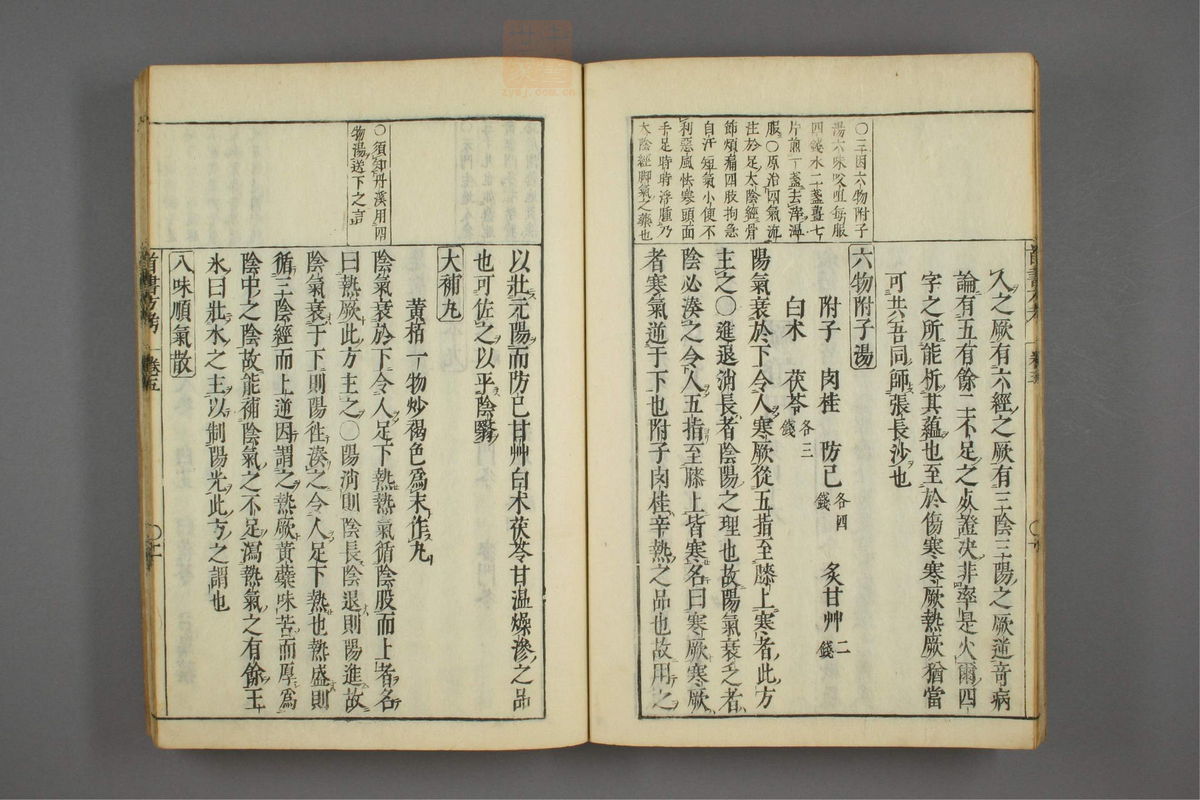 人之厥有六經之厥有三陰三陽之厥道奇病
論有五有餘二不足之死證決非率是火爾四
字之所能析其蘊也至於傷寒寒厥熱厥猶當
可共吾同師張長沙也
○三因六物附子
湯六味㕮咀每服
四錢水二盞薑七
片煎一盞去滓溫
服○原治四氣流
注於足太陰經骨
節煩痛四肢拘急
自汗短氣小便不
利惡風怯寒頭面
手足時時浮腫乃
太陰經脚氣之藥也
六物附子湯
附子 肉桂 防己各四錢 炙甘艸二錢
白朮 茯苓各三錢
陽氣衰於下令人寒厥從五指至膝上寒者此方
主之○進退消長者陰陽之理也故陽氣衰乏者
陰必湊之令人五指至膝上皆寒名曰寒厥寒厥
者寒氣逆于下也附子肉桂辛熱之品也故用之
以壯元陽而防己甘艸白朮茯苓甘温燥滲之品
也可佐之以平陰翳
大補丸
黄栢一物炒褐色爲末作丸
陰氣衰於下令人足下熱熱氣循陰股而上者名
曰熱厥此方主之○陽消則陰長陰退則陽進故
陰氣衰于下則陽徃湊之令人足下熱也熱盛則
循三陰經而上逆因謂之熱厥黄蘗味苦而厚爲
陰中之陰故能補陰氣之不足瀉熱氣之有餘王
氷曰壯水之主以制陽光此方之謂也
○須却丹溪用四
物湯送下之言
八味順氣散
卷五